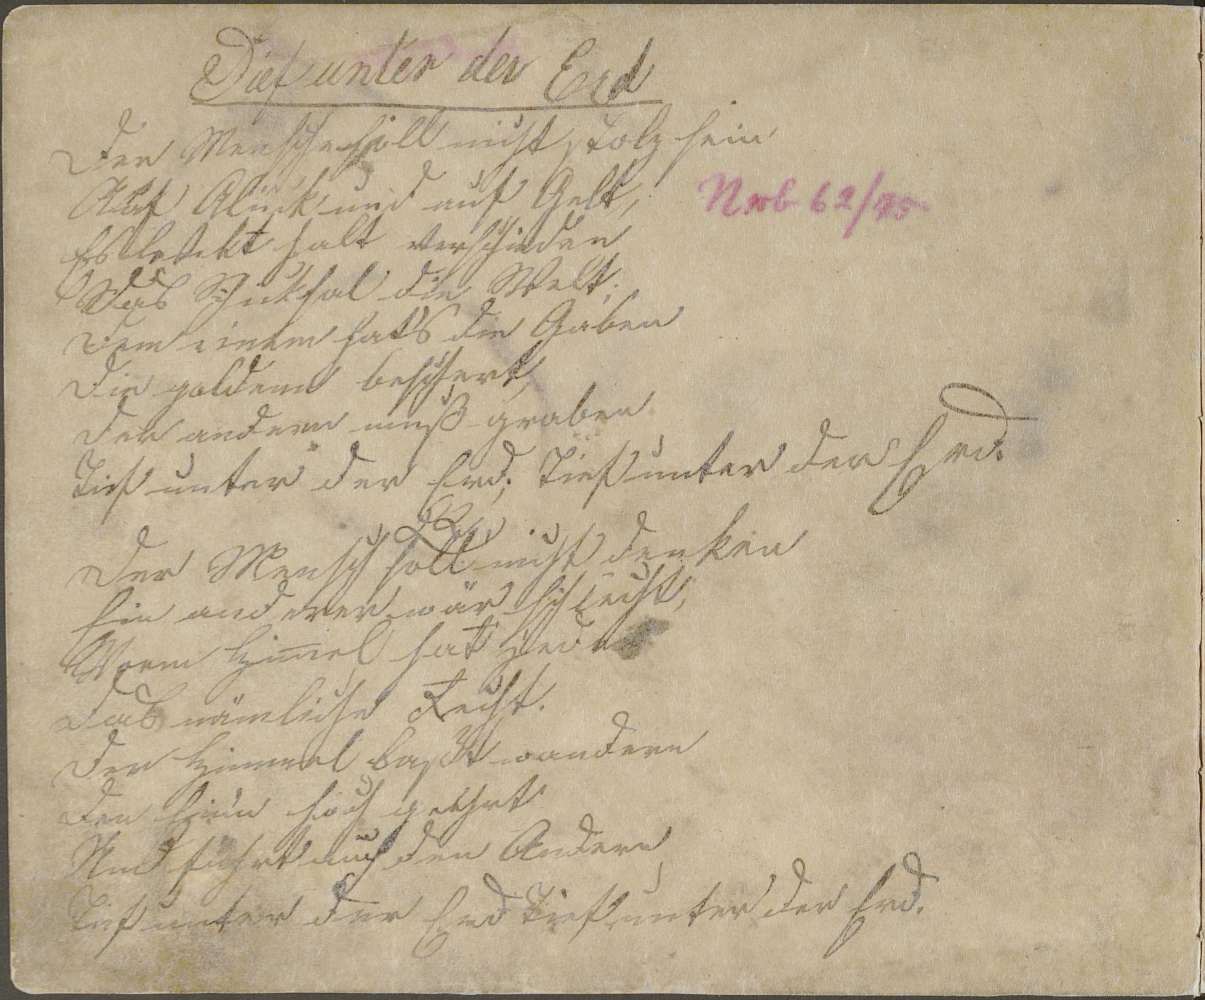 Tief unter der Erd
Der Mensch soll nicht stolz sein
Auf Glück und auf Gelt,
Es lenkt halt verschieden
Das Schiksal die Welt.
Dem einem hat's die Gaben
Die goldenen beschert,
Der andere muß graben
Tief unter der Erd, Tief unter der Erd.
Der Mensch soll nicht denken
Ein anderer wär schlecht,
Vorm Himel hat Jeder
Das nämliche Recht.
Der Himmel laßt wandern
Den Einen hoch geehrt
Und führt auch den Andern
Tief unter der Erd Tief unter der Erd.